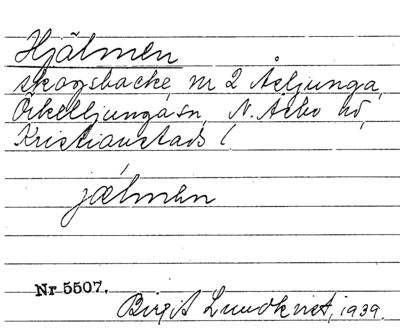 Hjälmen
skogsbacke, nr 2 Åsljunga,
Örkelljunga sn, N. Åsbo hd,
Kristianstads l.
jælmen
Nr 5507.
Birgit Lundkvist, 1939.